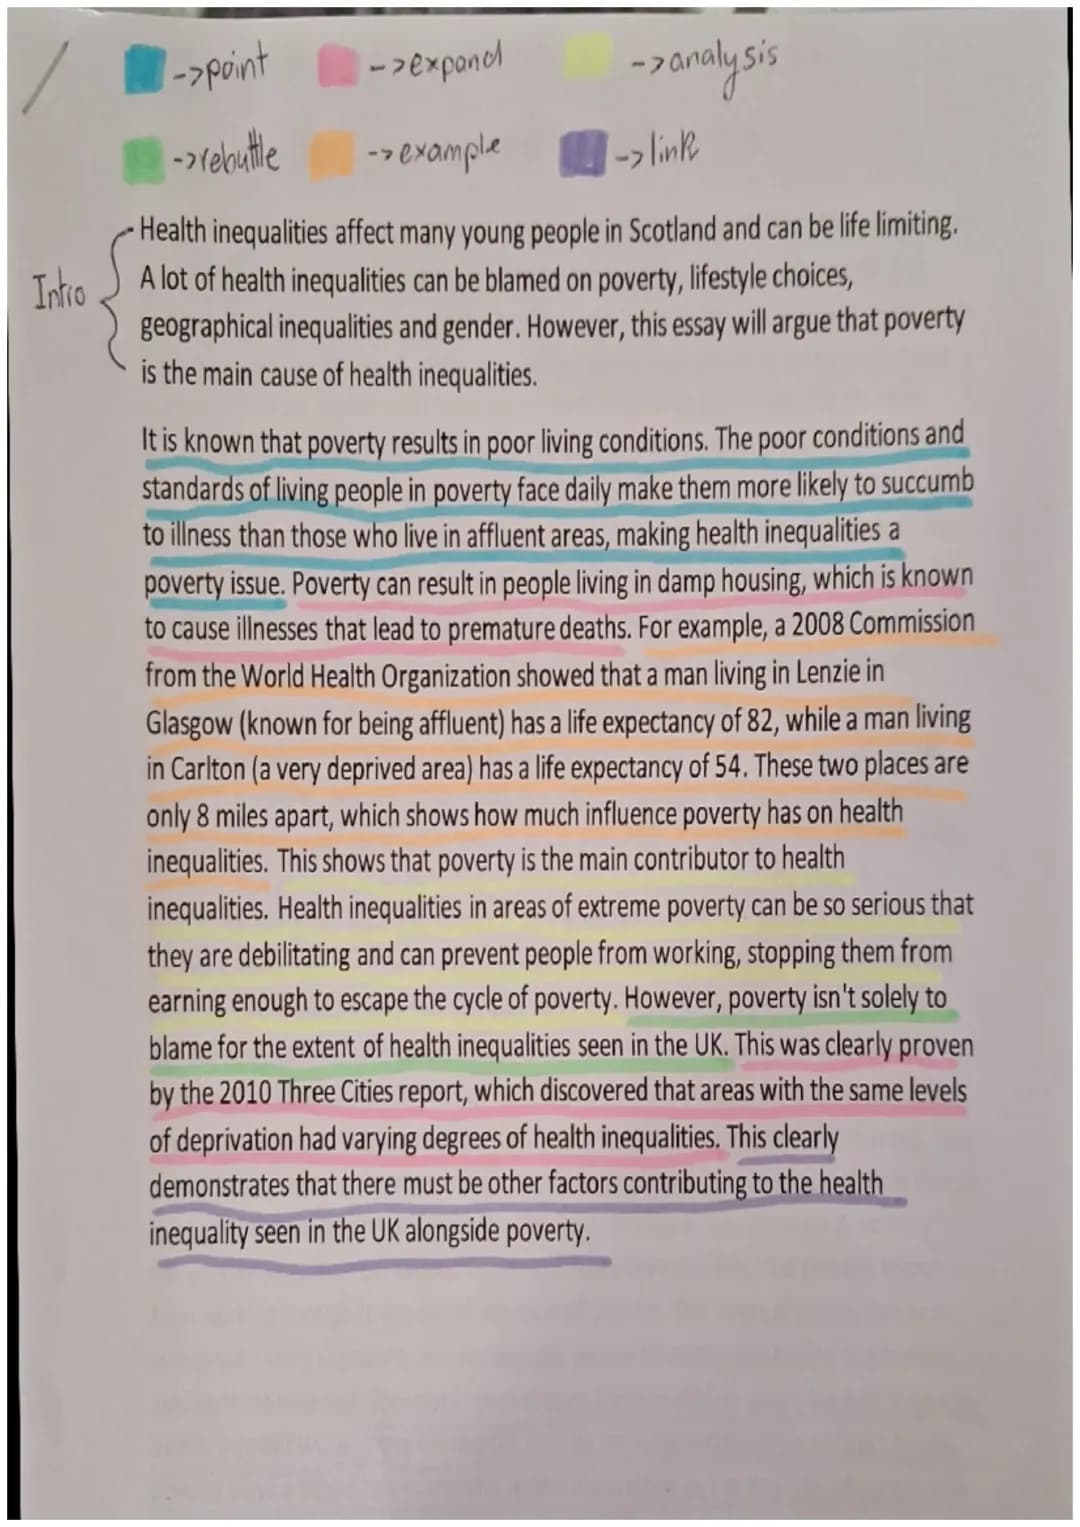 ->point ->expand ->analysis
->rebuttle ->example ->link
Intro
Health inequalities affect many young people in Scotland and can be life limiting.
A lot of health inequalities can be blamed on poverty, lifestyle choices,
geographical inequalities and gender. However, this essay will argue that poverty
is the main cause of health inequalities.
It is known that poverty results in poor living conditions. The poor conditions and
standards of living people in poverty face daily make them more likely to succumb
to illness than those who live in affluent areas, making health inequalities a
poverty issue. Poverty can result in people living in damp housing, which is known
to cause illnesses that lead to premature deaths. For example, a 2008 Commission
from the World Health Organization showed that a man living in Lenzie in
Glasgow (known for being affluent) has a life expectancy of 82, while a man living
in Carlton (a very deprived area) has a life expectancy of 54. These two places are
only 8 miles apart, which shows how much influence poverty has on health
inequalities. This shows that poverty is the main contributor to health
inequalities. Health inequalities in areas of extreme poverty can be so serious that
they are debilitating and can prevent people from working, stopping them from
earning enough to escape the cycle of poverty. However, poverty isn't solely to
blame for the extent of health inequalities seen in the UK. This was clearly proven
by the 2010 Three Cities report, which discovered that areas with the same levels
of deprivation had varying degrees of health inequalities. This clearly
demonstrates that there must be other factors contributing to the health
inequality seen in the UK alongside poverty.